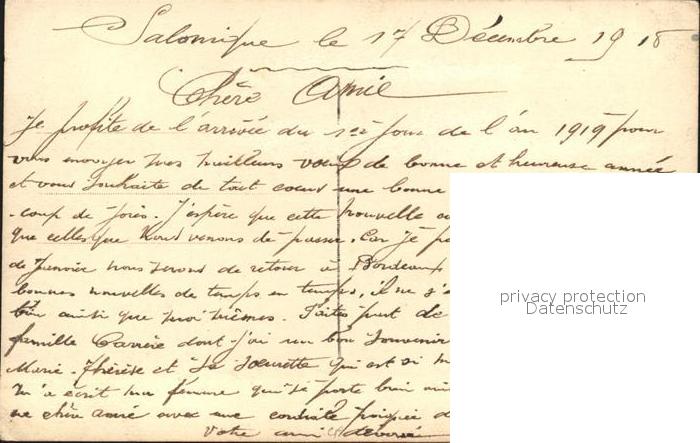 Salonique le 17 Décembre 1918
Chère Amie
Je profite de l'arrivée du 1er jour de l'an 1919 pour
vous envoyer mes meilleurs vœux de bonne et heureuse année
et vous souhaite de tout cœur une bonne
-coup de joies. J'espère que cette nouvelle
que celles que nous venons de passer. Car je
de Janvier nous serons de retour à Bordeaux
bonnes nouvelles de temps en temps, il ne
bien ainsi que moi mêmes. Faites part de
famille Carrère dont j'ai un bon souvenir
Marie-Thérèse et sa sœurette qui est si
m'a écrit ma femme qui se porte bien
ne chère amie avec une cordiale poignée d
Votre ami dévoué
privacy protection
Datenschutz